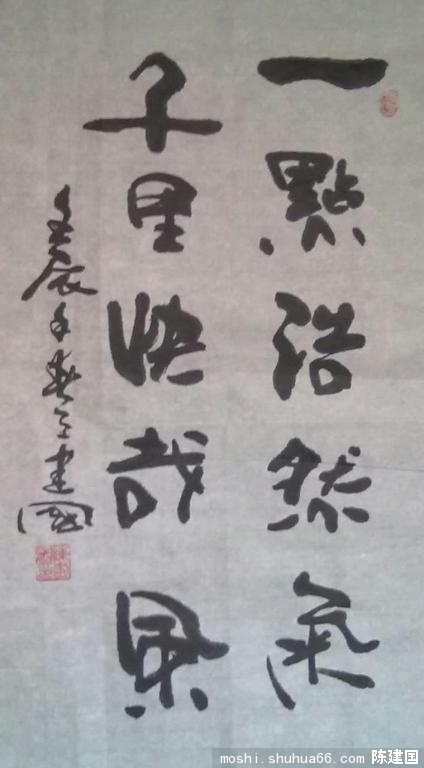 一點浩然氣
千里快哉風
壬辰年春建國
moshi.shuhua66.com 陈建国